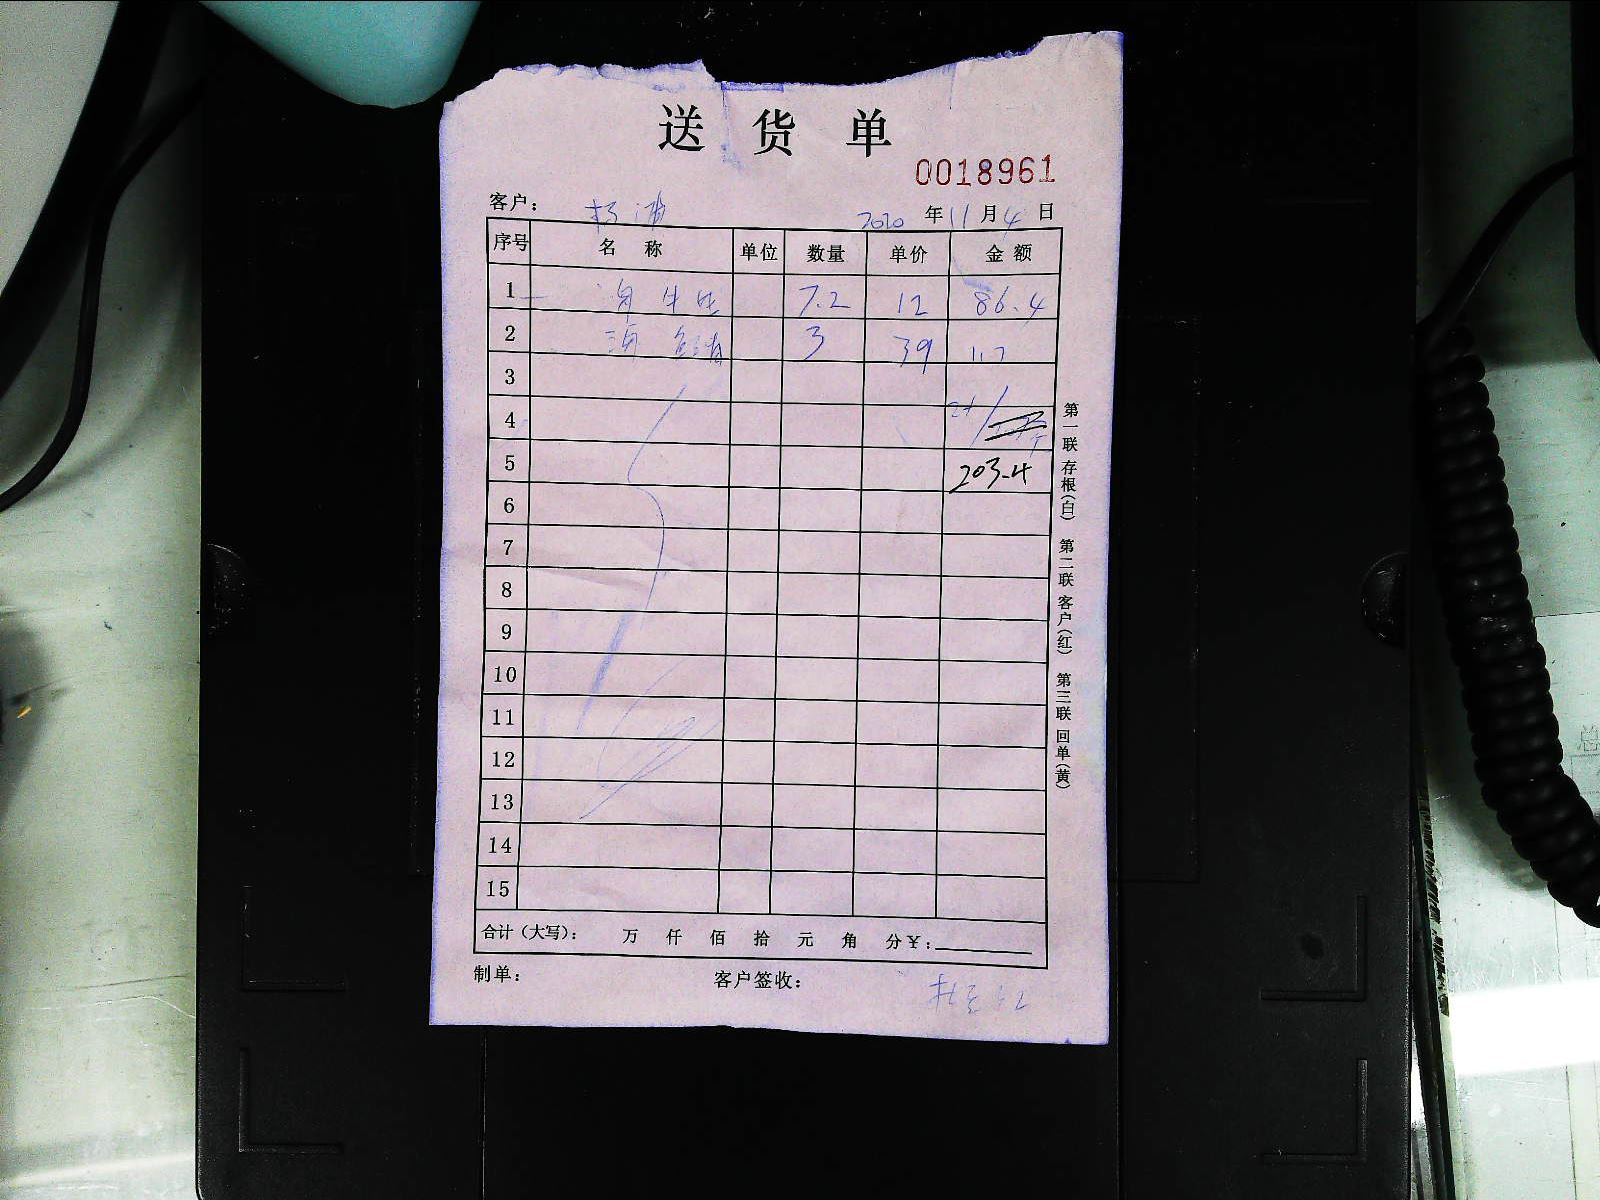 送 货 单
0018961
客户： 杨浦 2020 年 11 月 4 日
序号 名 称 单位 数量 单价 金 额
1 7.2 12 86.4
2 海 3 39 117
3
4
5 203.4
6
7
8
9
10
11
12
13
14
15
合计（大写）： 万 仟 佰 拾 元 角 分￥：
制单： 客户签收：
第一联 存根（白） 第二联 客户（红） 第三联 回单（黄）